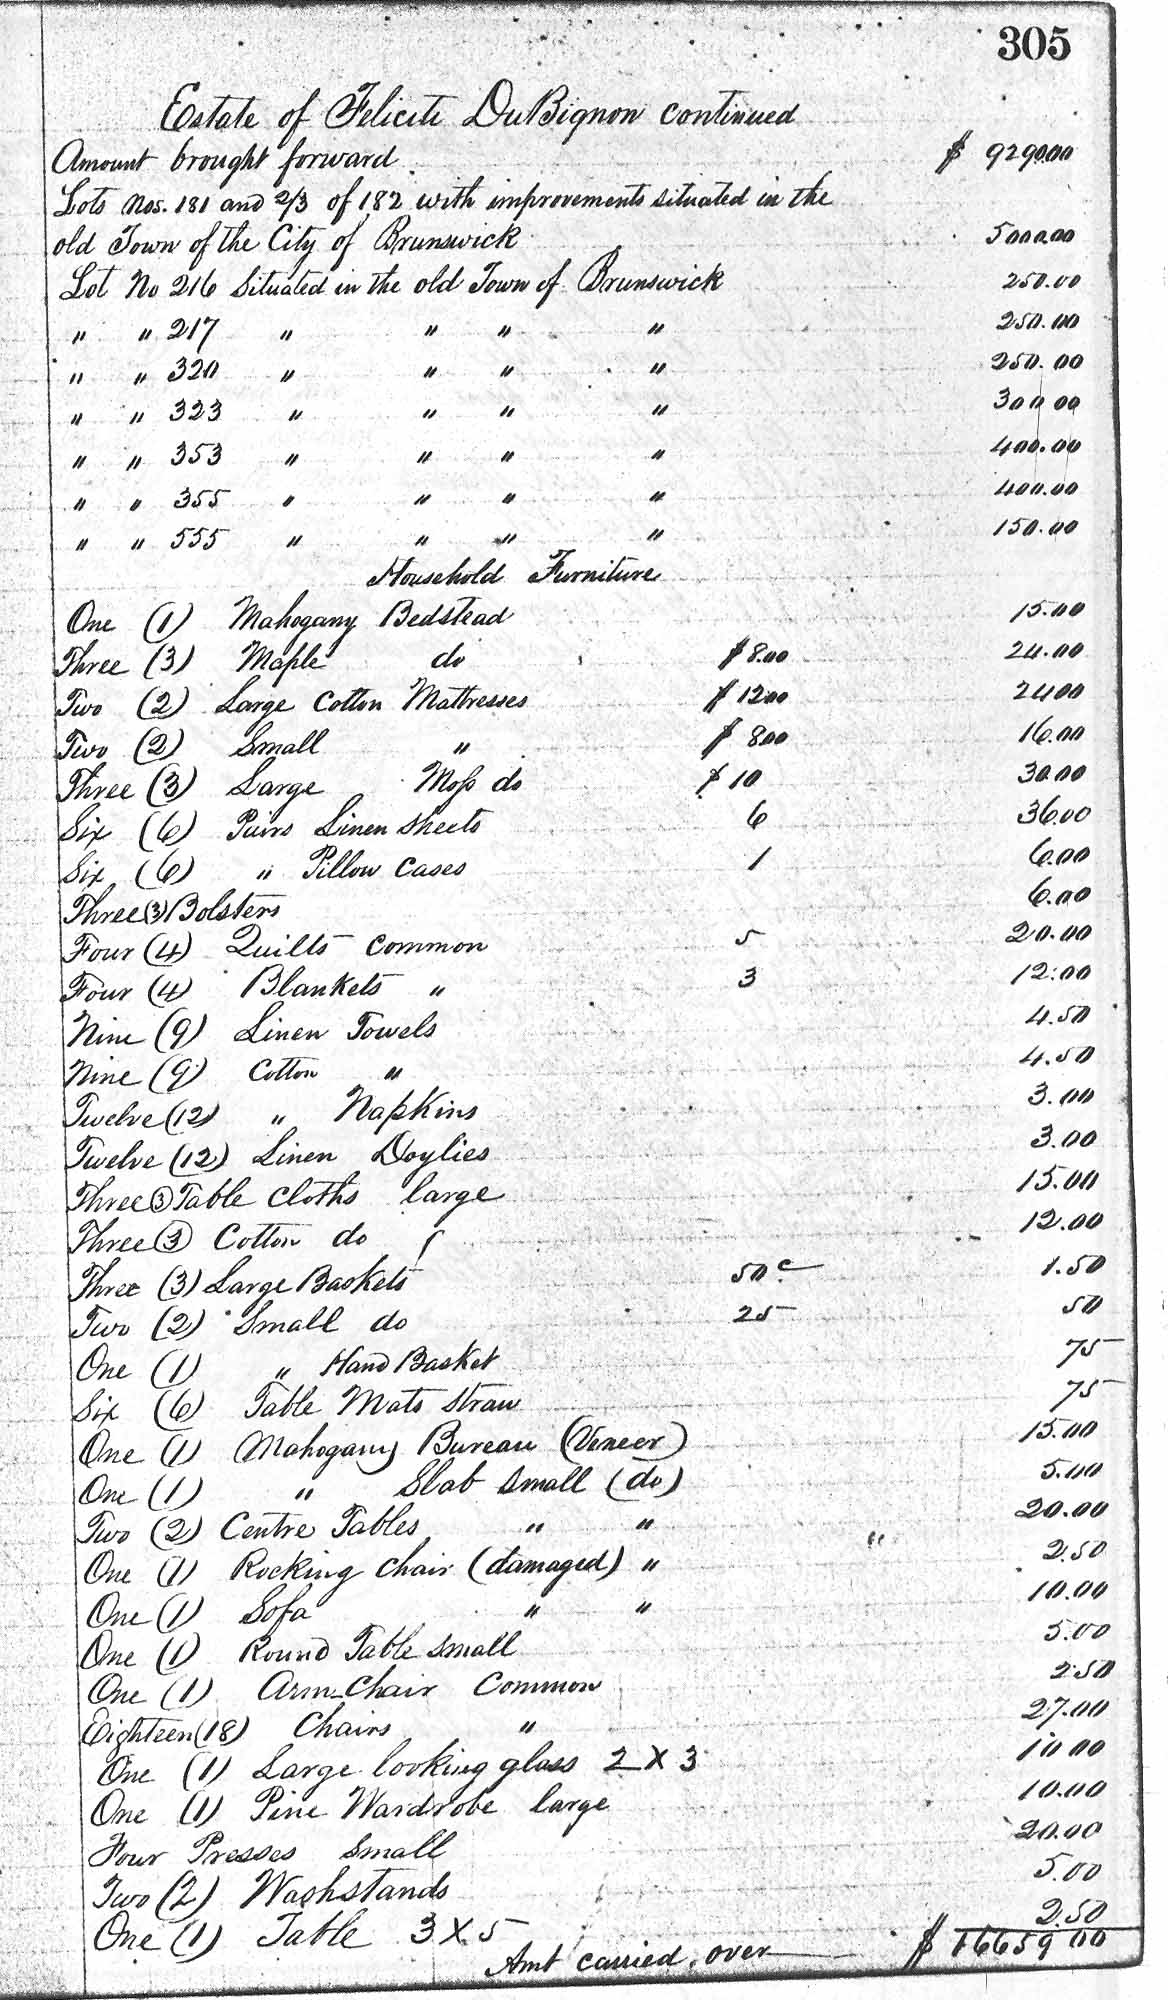 305
Estate of Felicite DuBignon continued
Amount brought forward $ 9290.00
Lots Nos. 181 and 2/3 of 182 with improvements situated in the
old Town of the City of Brunswick 5000.00
Lot No 216 Situated in the old Town of Brunswick 250.00
" " 217 " " " " 250.00
" " 320 " " " " 250.00
" " 323 " " " " 300.00
" " 353 " " " " 400.00
" " 355 " " " " 400.00
" " 555 " " " " 150.00
Household Furniture
One (1) Mahogany Bedstead 15.00
Three (3) Maple do $ 8.00 24.00
Two (2) Large Cotton Mattresses $ 1200 2400
Two (2) Small " $ 800 16.00
Three (3) Large Moss do $ 10 30.00
Six (6) Pairs Linen Sheets 6 36.00
Six (6) " Pillow Cases 1 6.00
Three (3) Bolsters 6.00
Four (4) Quilts common 5 20.00
Four (4) Blankets " 3 12.00
Nine (9) Linen Towels 4.50
Nine (9) Cotton " 4.50
Twelve (12) " Napkins 3.00
Twelve (12) Linen Doylies 3.00
Three (3) Table Cloths large 15.00
Three (3) Cotton do 12.00
Three (3) Large Baskets 50c 1.50
Two (2) Small do 25 50
One (1) " Hand Basket 75
Six (6) Table Mats Straw 75
One (1) Mahogany Bureau (Veneer) 15.00
One (1) " Slab small (do) 5.00
Two (2) Centre Tables " " " 20.00
One (1) Rocking Chair (damaged) " 2.50
One (1) Sofa " " 10.00
One (1) Round Table small 5.00
One (1) Arm-Chair Common 2.50
Eighteen (18) Chairs " 27.00
One (1) Large looking glass 2 X 3 10.00
One (1) Pine Wardrobe large 10.00
Four Presses small 20.00
Two (2) Washstands 5.00
One (1) Table 3 X 5 2.50
Amt carried over $ 16659 00